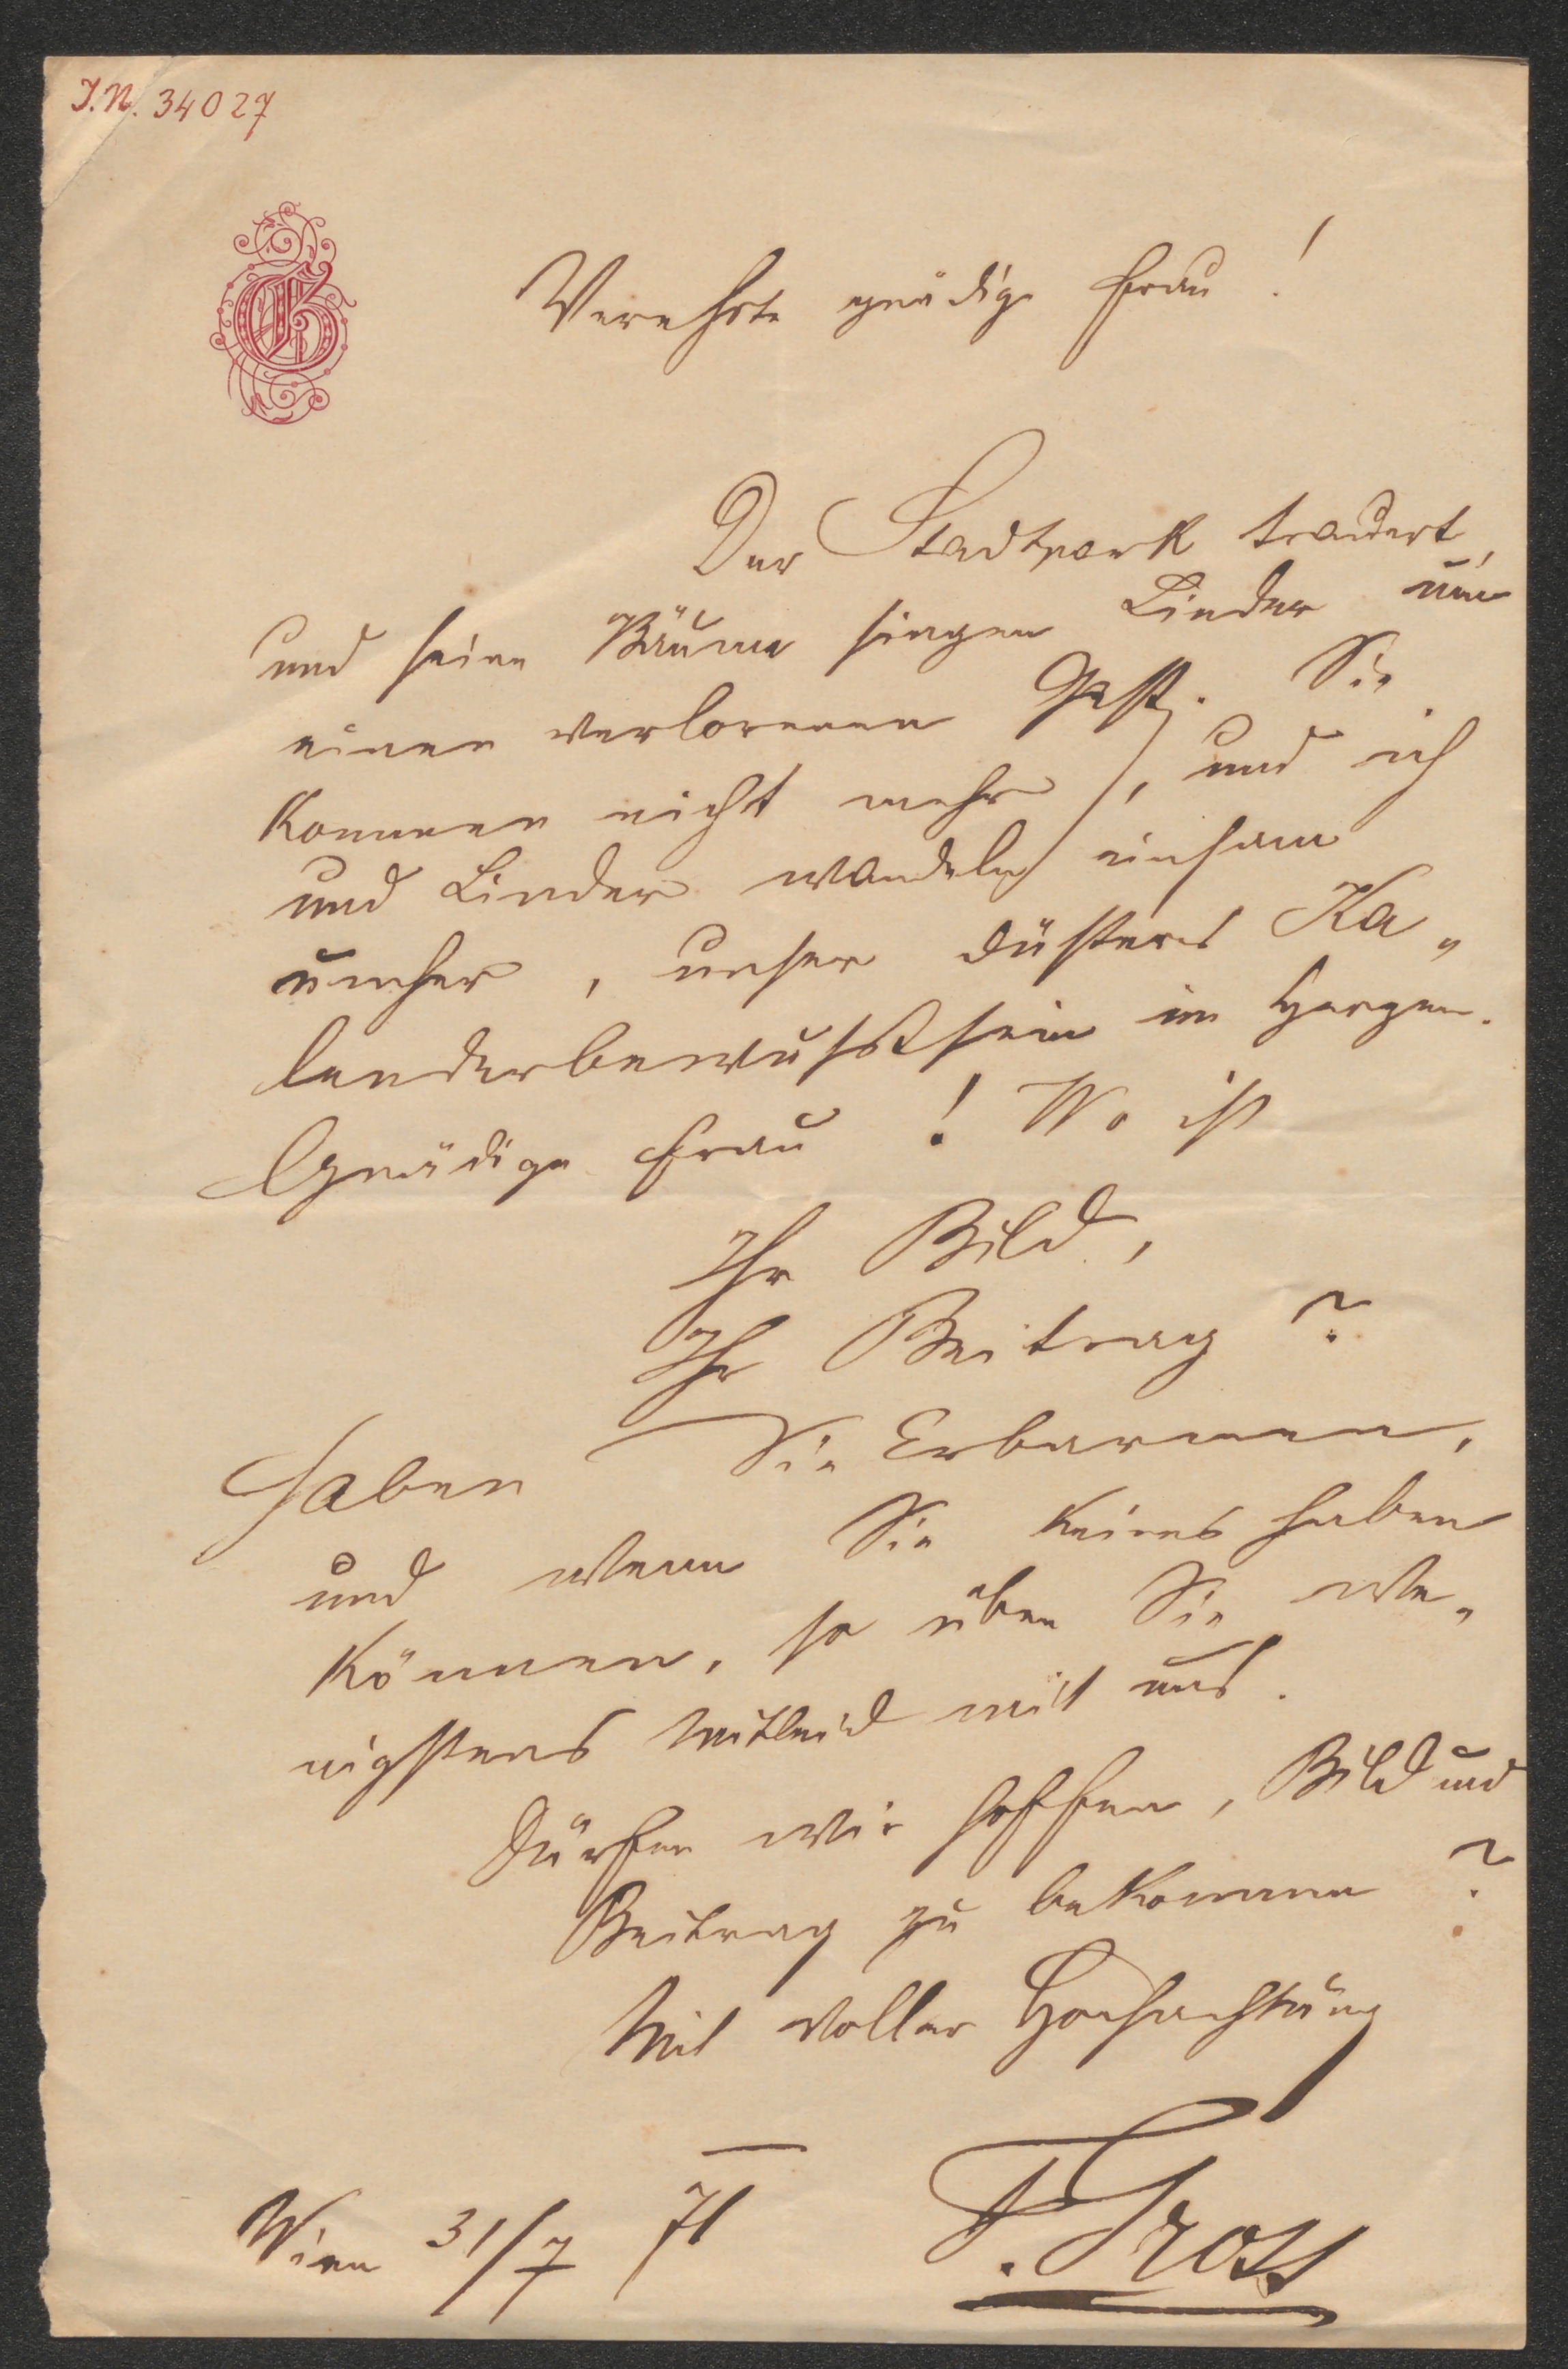 I.N. 34027
G
Verehrte gnädige Frau!
Der Stadtpark trauert,
und seine Bäume singen Lieder um
einen verlorenen Gast. Sie
kommen nicht mehr, und ich
und Linder wandeln einsam
umher, unser düsteres Ka„
lenderbewußtsein im Herzen.
Gnädige Frau! Wo ist
Ihr Bild,
Ihr Beitrag?
Haben Sie Erbarmen,
und wenn Sie keines haben
können, so üben Sie we„
nigstens Mitleid mit uns.
Dürfen wir hoffen, Bild und
Beitrag zu bekommen?
Mit voller Hochachtung
Wien 31/7 71
F. Gross